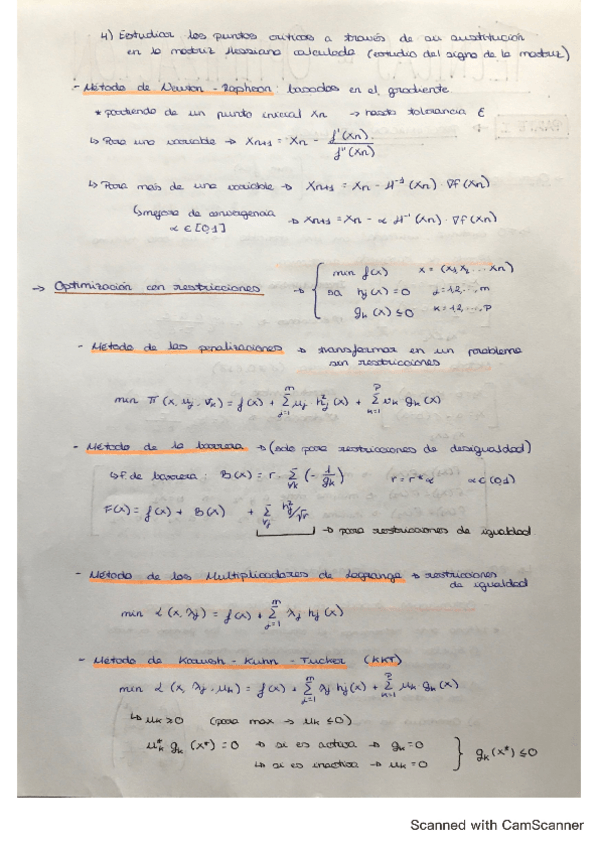 4) Estudiar los puntos críticos a través de su sustitución
en la matriz Hessiana calculada (estudio del signo de la matriz)
- Método de Newton - Raphson: basados en el gradiente
* partiendo de un punto inicial Xn → hasta tolerancia ε
↳ Para una variable → Xn+1 = Xn - f'(Xn) / f''(Xn)
↳ Para más de una variable → Xn+1 = Xn - H⁻¹(Xn) · ∇f(Xn)
↳ mejora de convergencia → Xn+1 = Xn - α H⁻¹(Xn) · ∇f(Xn)
α ∈ [0,1]
min f(x) x = (x1, x2, ... xn)
→ Optimización con restricciones → sa hj(x) = 0 j = 1,2,..., m
gk(x) ≤ 0 k = 1,2,..., p
- Método de las penalizaciones → transformar en un problema
sin restricciones
min π(x, uj, vk) = f(x) + Σ(j=1, m) uj hj²(x) + Σ(k=1, p) vk gk(x)
- Método de la barrera → (solo para restricciones de desigualdad)
↳ f de barrera: B(x) = r · Σ∀k (- 1/gk) r = r * α α ∈ (0,1)
F(x) = f(x) + B(x) + Σ∀j hj²/√r
→ para restricciones de igualdad
- Método de los Multiplicadores de Lagrange → restricciones
de igualdad
min L(x, λj) = f(x) + Σ(j=1, m) λj hj(x)
- Método de Karush - Kuhn - Tucker (KKT)
min L(x, λj, uk) = f(x) + Σ(j=1, m) λj hj(x) + Σ(k=1, p) uk gk(x)
↳ uk ≥ 0 (para max → uk ≤ 0)
uk* gk(x*) = 0 → si es activa → gk = 0
↳ si es inactiva → uk = 0 } gk(x*) ≤ 0
Scanned with CamScanner